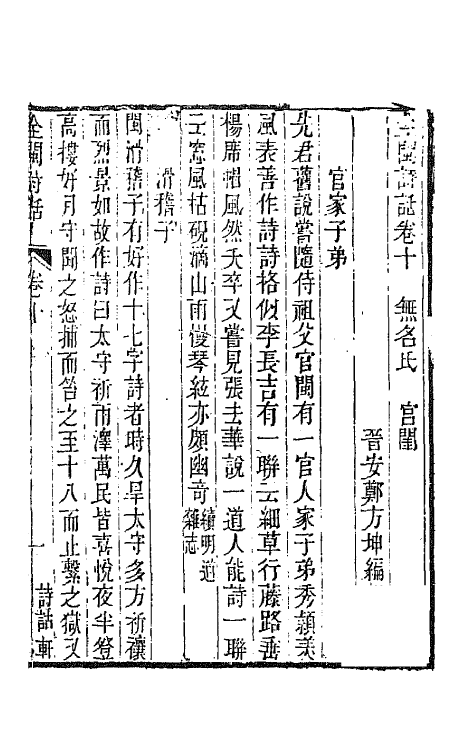 全閩詩話卷十　無名氏　宮閨
晉安鄭方坤編
官家子弟
先君舊說嘗隨侍祖父官閩有一官人家子弟秀穎美
風表善作詩詩格似李長吉有一聯云細草行藤路垂
楊席帽風然夭卒又嘗見張去華說一道人能詩一聯
云窓風枯硯滴山雨慢琴絃亦頗幽奇續明道雜志
滑稽子
閩滑稽子有好作十七字詩者時久旱太守多方祈禳
而烈景如故作詩曰太守祈雨澤萬民皆喜悅夜半登
高樓好月守聞之怒捕而笞之至十八而止繫之獄又
全閩詩話　卷十　一　詩話軒